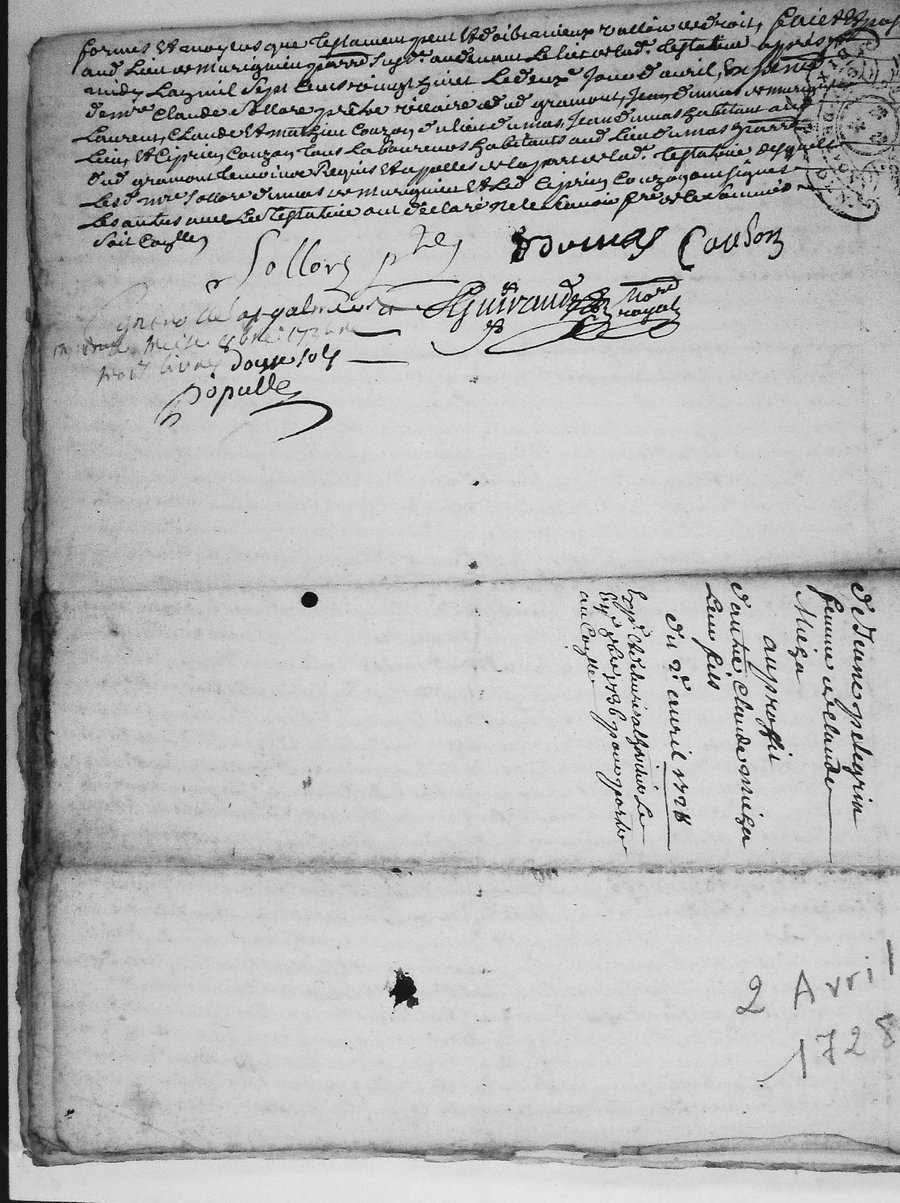 formes et moyens que testament peut et doibt mieux valloir de droit, faict et passé
aud lieu de Murignieu parre susd. au devant le lict de lad. testatrice appres
midy Lan mil sept cents vingt huict Le deuxe. jour d'avril, En présence
de mre Claude Sollore prêtre vicaire dud gramont, Jean dumas de murignieu
Laurent, Claude et mathieu Couzon du lieu du mas, Jean dumas habitant aud
Lieu, et Ciprien Couzon tous Laboureurs habitants aud Lieu du mas parre
dud gramont temoins Requis et appelles de la part de lad. testatrice desquels
Led. mre Sollore dumas de murignieu et led Ciprien Couzon ont signés
Les autres avec La testatrice ont declaré ne le scavoir fre de ce sommés
Soit Conlle
Sollore ptre
Dumas Couson
Guiraud Nore royal
a st galmier
8bre 1728
trois livres douze sols
Populle
De Jeanne pelegrin
femme de Claude
Miega
au proffit
d'autre Claude miega
Leur fils
du 2e avril 1728
Exp. et delivré
1736 pour porter
au Conlle
2 Avril
1728